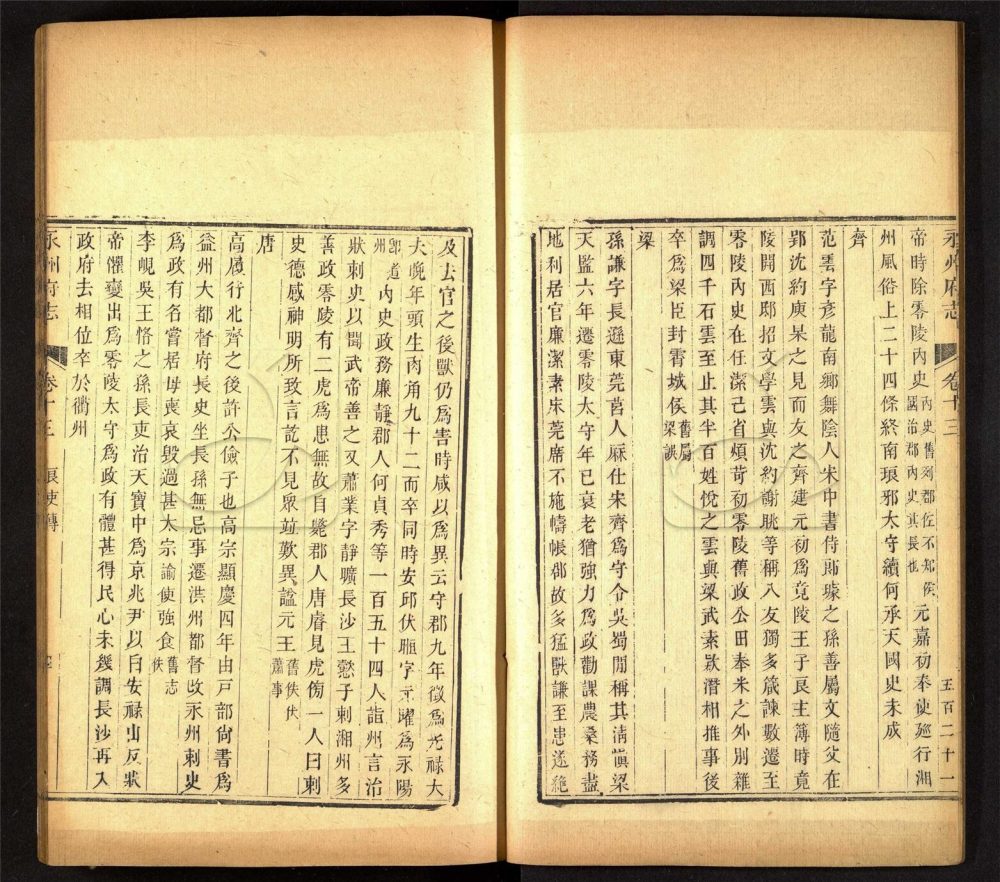 永州府志 卷十三 五百二十一
帝時除零陵內史內史舊列郡佐不知侯國治郡內史其長也元嘉初奉使廵行湘
州風俗上二十四條終南琅邪太守續何承天國史未成
齊
范雲字彥龍南鄉舞陰人宋中書侍郎璩之孫善屬文隨父在
郢沈約庾杲之見而友之齊建元初為竟陵王子良主簿時竟
陵開西邸招文學雲與沈約謝朓等稱八友獨多箴諫數遷至
零陵內史在任潔己省煩苛初零陵舊政公田奉米之外別雜
調四千石雲至止其半百姓悅之雲與梁武素欵潛相推事後
卒為梁臣封霄城侯舊屬梁誤
梁
孫謙字長遜東莞莒人厤仕宋齊為守令吳蜀閒稱其清愼梁
天監六年遷零陵太守年已衰老猶強力為政勸課農桑務盡
地利居官廉潔素牀莞席不施幬帳郡故多猛獸謙至患遂絶
及去官之後獸仍為害時咸以為異云守郡九年徵為光祿大
大晚年頭生肉角九十二而卒同時安邱伏暅字元曜為永陽
郡道州內史政務廉靜郡人何貞秀等一百五十四人詣州言治
狀刺史以聞武帝善之又蕭業字靜曠長沙王懿子刺湘州多
善政零陵有二虎為患無故自斃郡人唐睿見虎傍一人曰刺
史德感神明所致言訖不見眾竝歎異諡元王舊佚伏蕭事
唐
高履行北齊之後許公儉子也高宗顯慶四年由戸部尙書為
益州大都督府長史坐長孫無忌事遷洪州都督改永州刺史
為政有名嘗居母喪哀毀過甚太宗諭使強食舊志佚
李峴吳王恪之孫長吏治天寶中為京兆尹以曰安祿山反狀
帝懼變出為零陵太守為政有體甚得民心未幾調長沙再入
政府去相位卒於衢州
永州府志 卷十三 良吏傳